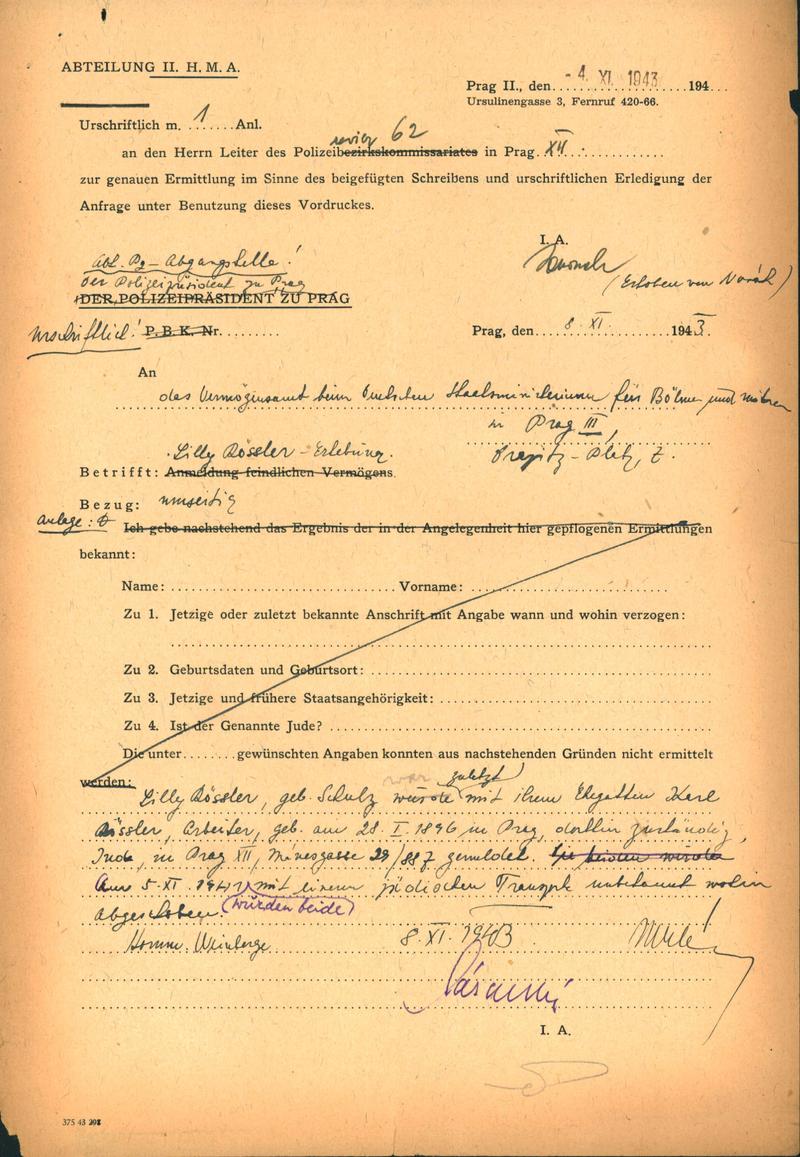 ABTEILUNG II. H. M. A.
Prag II., den - 4. XI. 1943 194...
Ursulinengasse 3, Fernruf 420-66.
Urschriftlich m. 1 Anl.
revier 62
an den Herrn Leiter des Polizeibezirkskommissariates in Prag. XII
zur genauen Ermittlung im Sinne des beigefügten Schreibens und urschriftlichen Erledigung der
Anfrage unter Benutzung dieses Vordruckes.
I. A.
(Erhoben von Novák)
Abt. Pg - Abgangstelle!
Der Polizeipräsident zu Prag
DER POLIZEIPRÄSIDENT ZU PRAG
Urschriftlich! P. B. K. Nr.
Prag, den 8. XI. 1943.
An
das Vermögensamt beim Deutschen Staatsministerium für Böhmen und Mähren
in Prag III,
Lilly Rössler - Erhebung.
Platz, 7.
Betrifft: Anmeldung feindlichen Vermögens.
Bezug: umseitig
Anlage: Ich gebe nachstehend das Ergebnis der in der Angelegenheit hier gepflogenen Ermittlungen
bekannt:
Name: Vorname:
Zu 1. Jetzige oder zuletzt bekannte Anschrift mit Angabe wann und wohin verzogen:
Zu 2. Geburtsdaten und Geburtsort:
Zu 3. Jetzige und frühere Staatsangehörigkeit:
Zu 4. Ist der Genannte Jude?
Die unter gewünschten Angaben konnten aus nachstehenden Gründen nicht ermittelt
werden:
war zuletzt
Lilly Rössler, geb. Schulz wurde mit ihrem Ehegatten Karl
Rössler, Arbeiter, geb. am 28. I. 1896 in Prag, dorthin zuständig,
Jude, in Prag XII, 29/887 gemeldet. Sie beiden wurden
Am 5. XI. 194 mit einem jüdischen Transp. unbekannt wohin
abgeschoben. (wurden beide)
Komm. Weinberge 8. XI. 1943.
I. A.
375 43